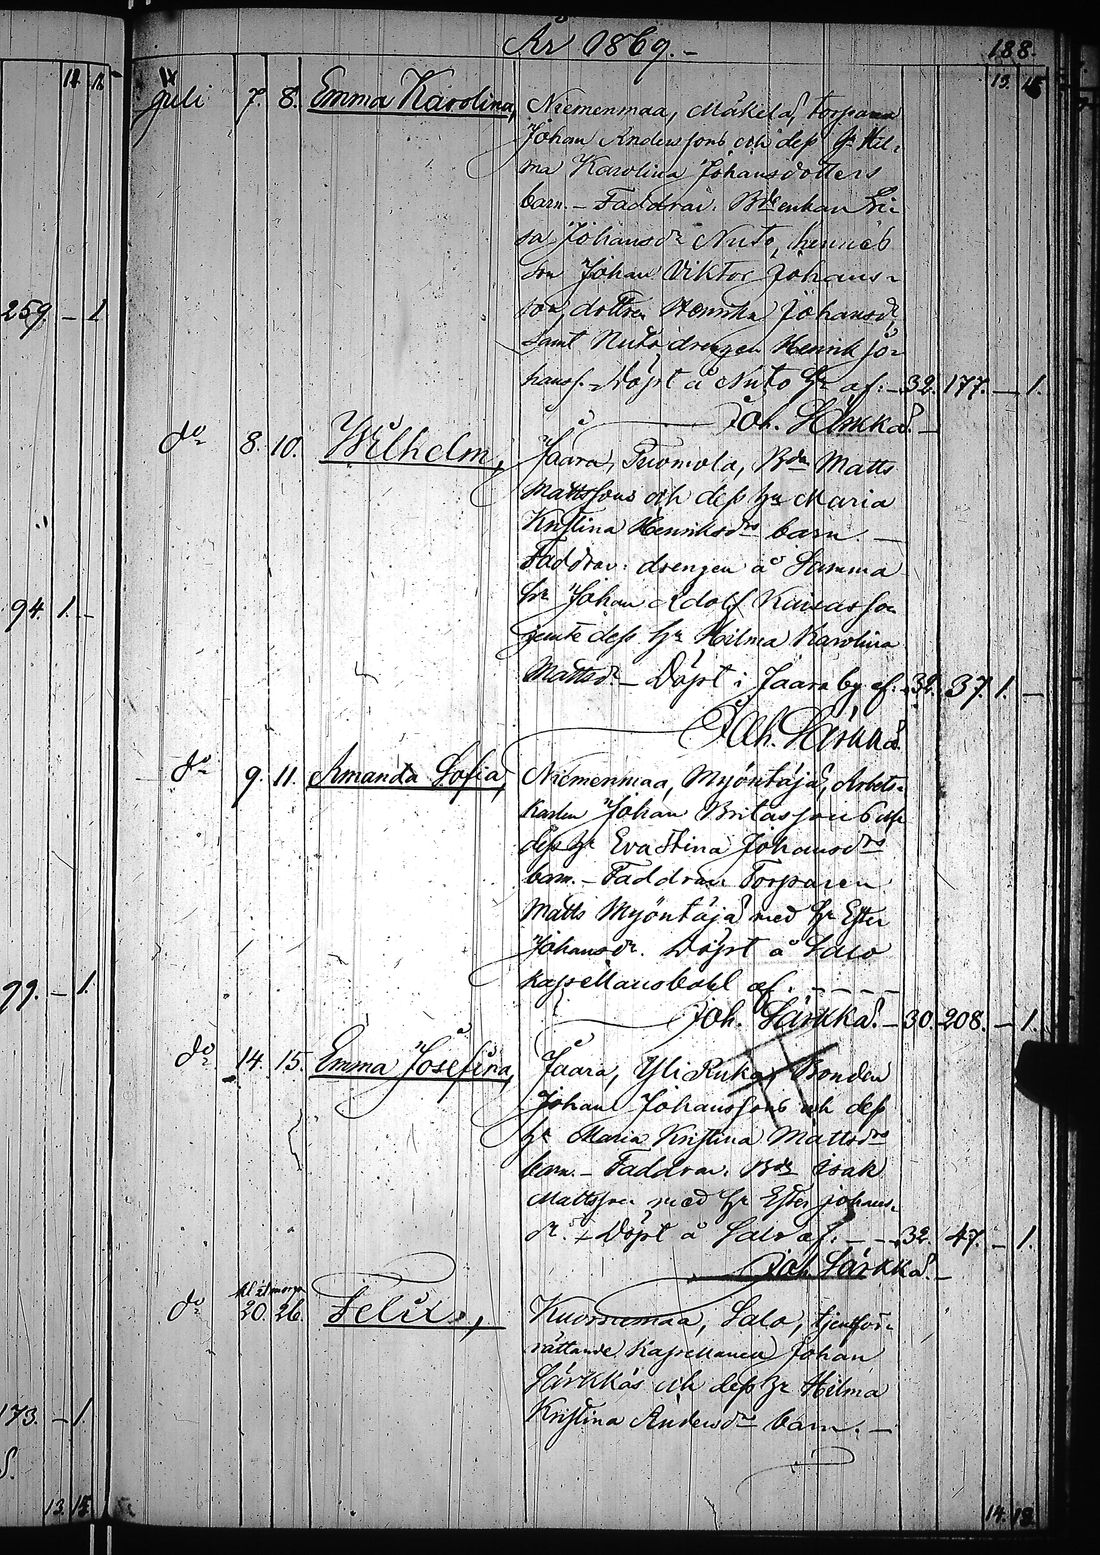 År 1869.-
188.
12. 12.
13. 15
Juli 7. 8. Emma Karolina, Niemenmaa, Mäkelä, torparen
Johan Anderssons och dess h: Hil-
ma Karolina Johansdotters
barn. - Faddrar: Bdeenkan
sa Johansdr Nuto,
son Johan Viktor Johans-
son, dottren Henrika Johansdr,
samt Nuto drengen Henrik Jo-
hanss. - Döpt å Nuto hr af. - 32. 177. - 1.
Joh. Särkkä. -
259. - 1.
do 8. 10. Wilhelm, Jaara, Tuomola, Bdn Matts
Mattssons och dess hu Maria
Kristina Henriksdrs barn -
Faddrar: drengen å Samma
hr Johan Adolf
jemte dess hr Hilma Karolina
Mattsdr. - Döpt i Jaara by af. 32. 37. 1. -
Joh. Särkkä.
94. 1. -
do 9. 11. Amanda Sofia, Niemenmaa, Myöntäjä, Arbets-
karlen Johan Britasson och
dess hr Eva Stina Johansdrs
barn. - Faddrar: Torparen
Matts Myöntäjä med hr Ester
Johansdr. Döpt å Salo
kapellansbohl af. - - - -
Joh. Särkkä. - 30. 208. - 1.
99. - 1.
do 14. 15. Emma Josefina, Jaara, Yli Ruka, Bonden
Johan Johanssons och dess
hr Maria Kristina Mattsdrs
barn. - Faddrar: Bdn Isak
Mattsson med hr Ester Johans-
dr. - Döpt å Salo af. - - 32. 47. - 1.
Joh. Särkkä. -
Kl 2 morg.
do 20. 26. Felix, Kuorsumaa, Salo, tjenstför-
rättande Kapellanen Johan
Särkkäs och dess hr Hilma
Kristina Andersdrs barn. -
173. - 1.
13. 15.
14. 18.